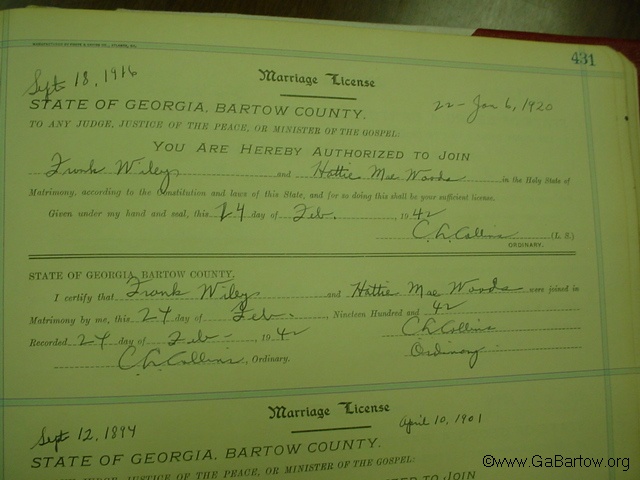 431
Sept 18, 1916
Marriage License
22 - Jan 6, 1920
STATE OF GEORGIA, BARTOW COUNTY.
TO ANY JUDGE, JUSTICE OF THE PEACE, OR MINISTER OF THE GOSPEL:
YOU ARE HEREBY AUTHORIZED TO JOIN
Frank Wiley and Hattie Mae Woods in the Holy State of
Matrimony, according to the Constitution and laws of this State, and for so doing this shall be your sufficient license.
Given under my hand and seal, this 24 day of Feb. 1942
C. L. Collins (L. S.)
ORDINARY.
STATE OF GEORGIA, BARTOW COUNTY.
I certify that Frank Wiley and Hattie Mae Woods were joined in
Matrimony by me, this 24 day of Feb. Nineteen Hundred and 42
Recorded 24 day of Feb 1942 C L Collins
C L Collins, Ordinary. Ordinary
Marriage License
Sept 12, 1894 April 10, 1901
STATE OF GEORGIA, BARTOW COUNTY.
TO ANY JUDGE, JUSTICE OF THE PEACE, OR MINISTER OF THE GOSPEL:
©www.GaBartow.org